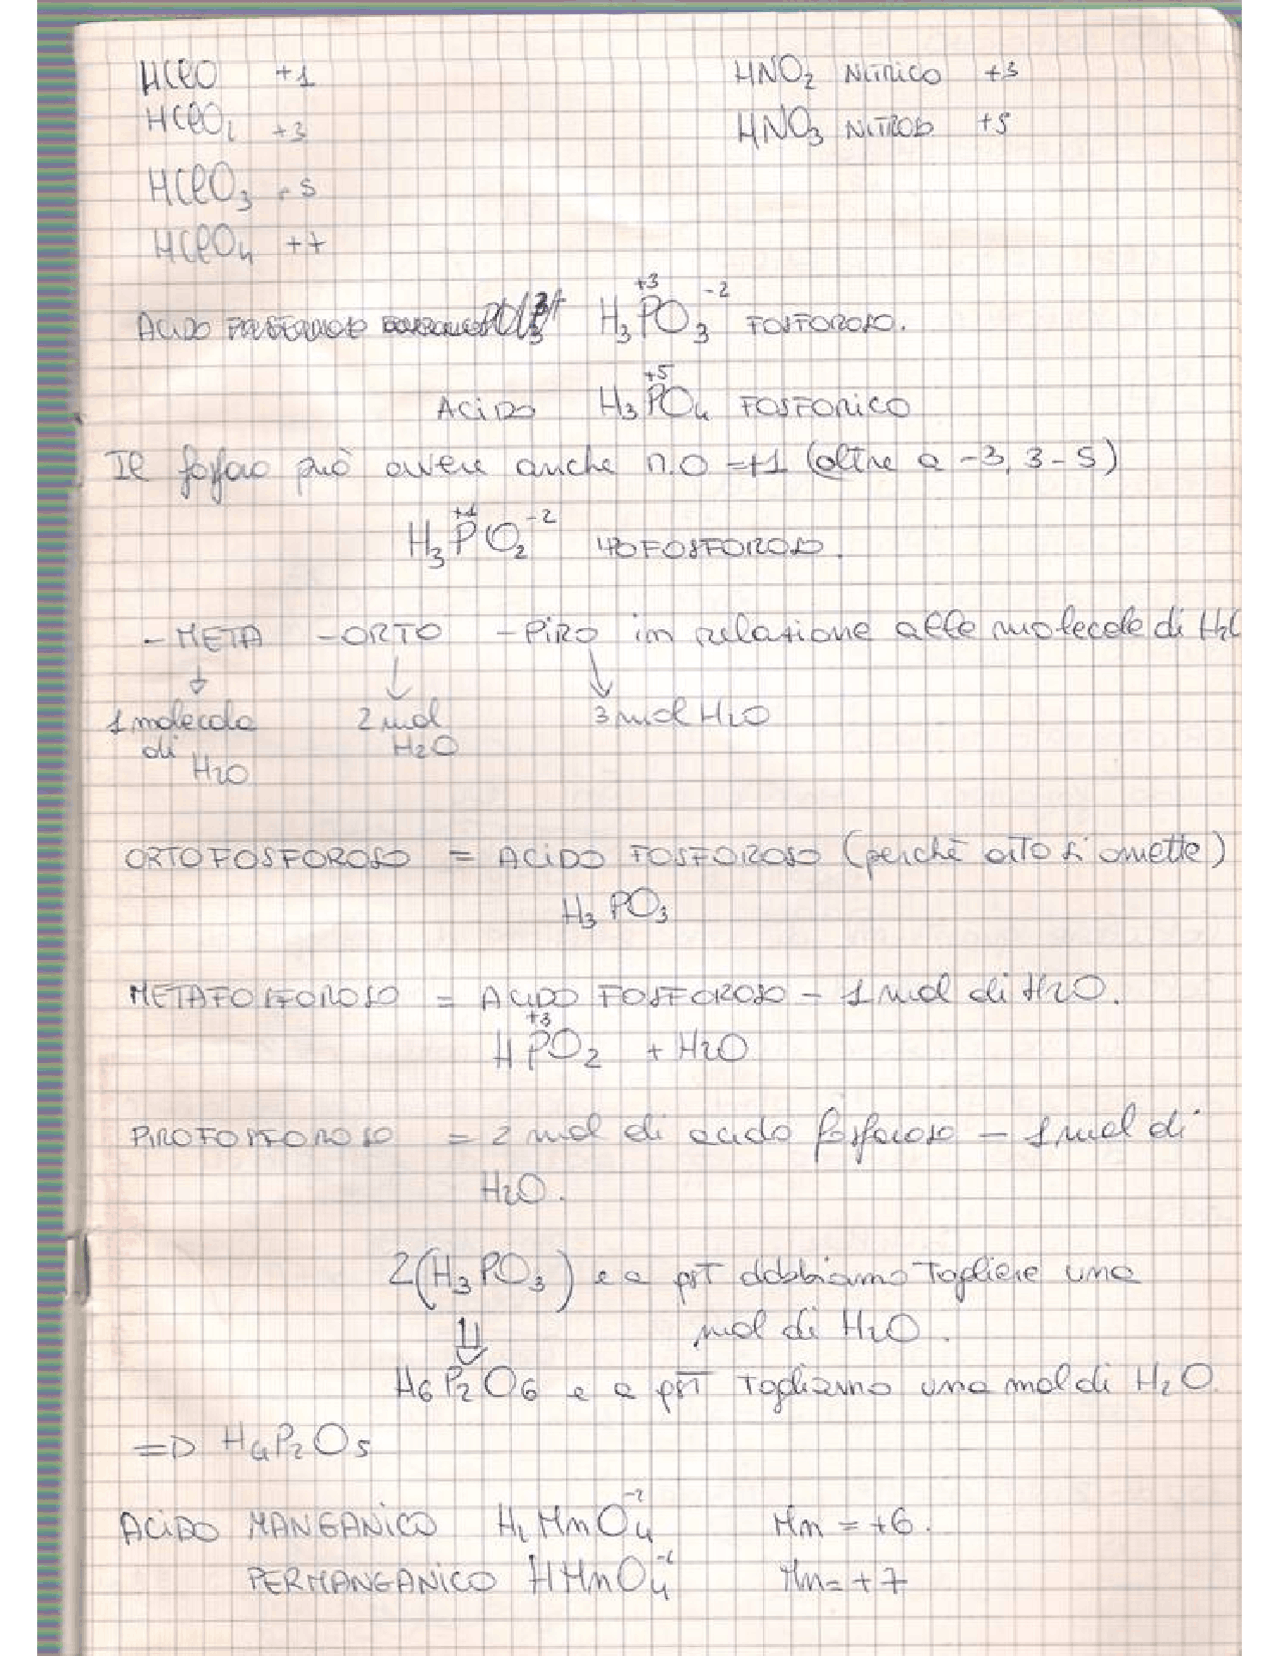 HClO +1 HNO2 NITRICO +3
HClO2 +3 HNO3 NITROSO +5
HClO3 +5
HClO4 ++
ACIDO H3PO3 +3 -2 FOSFOROSO.
ACIDO H3PO4 +5 FOSFORICO
Il fosforo può avere anche n.O =+1 (oltre a -3, 3-5)
H3PO2 +1 -2 IPOFOSFOROSO.
- META - ORTO - PIRO in relazione alle molecole di H2O
1 molecola 2 mol 3 mol H2O
di H2O
H2O
ORTOFOSFOROSO = ACIDO FOSFOROSO (perché orto si omette)
H3PO3
METAFOSFOROSO = ACIDO FOSFOROSO - 1 mol di H2O.
+3
HPO2 + H2O
PIROFOSFOROSO = 2 mol di acido fosforoso - 1 mol di
H2O.
2(H3PO3) e a dobbiamo togliere una
mol di H2O.
H6P2O6 e a togliamo una mol di H2O.
=D H4P2O5
ACIDO MANGANICO H2MnO4 -2 Mn = +6.
PERMANGANICO HMnO4 -2 Mn = +7